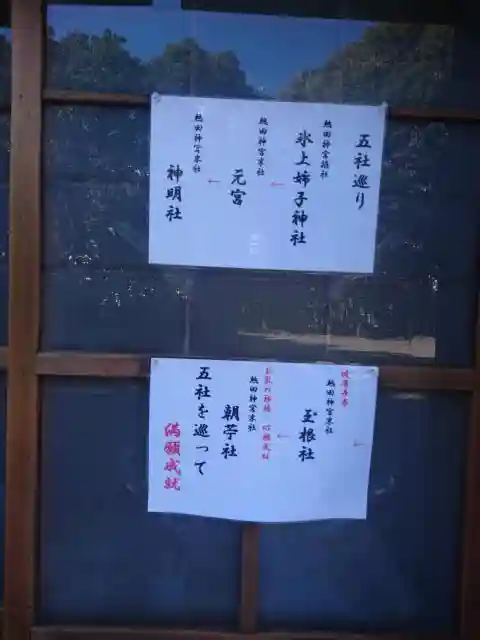 五社巡り
熱田神宮摂社
氷上姉子神社
←
熱田神宮末社
元宮
←
熱田神宮末社
神明社
←
熱田神宮末社
玉根社
←
熱田神宮末社
朝苧社
五社を巡って
満願成就